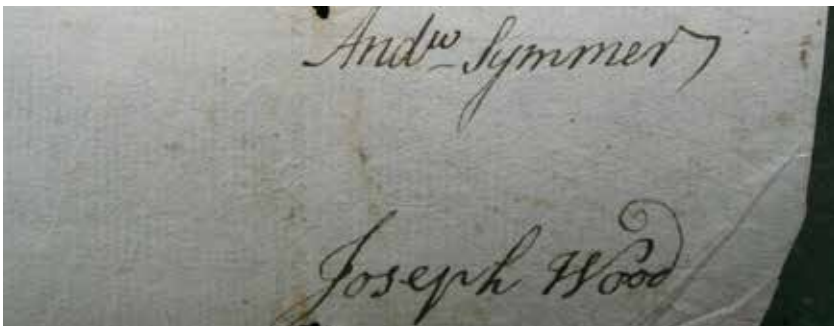 Andʷ Symmer
Joseph Wood